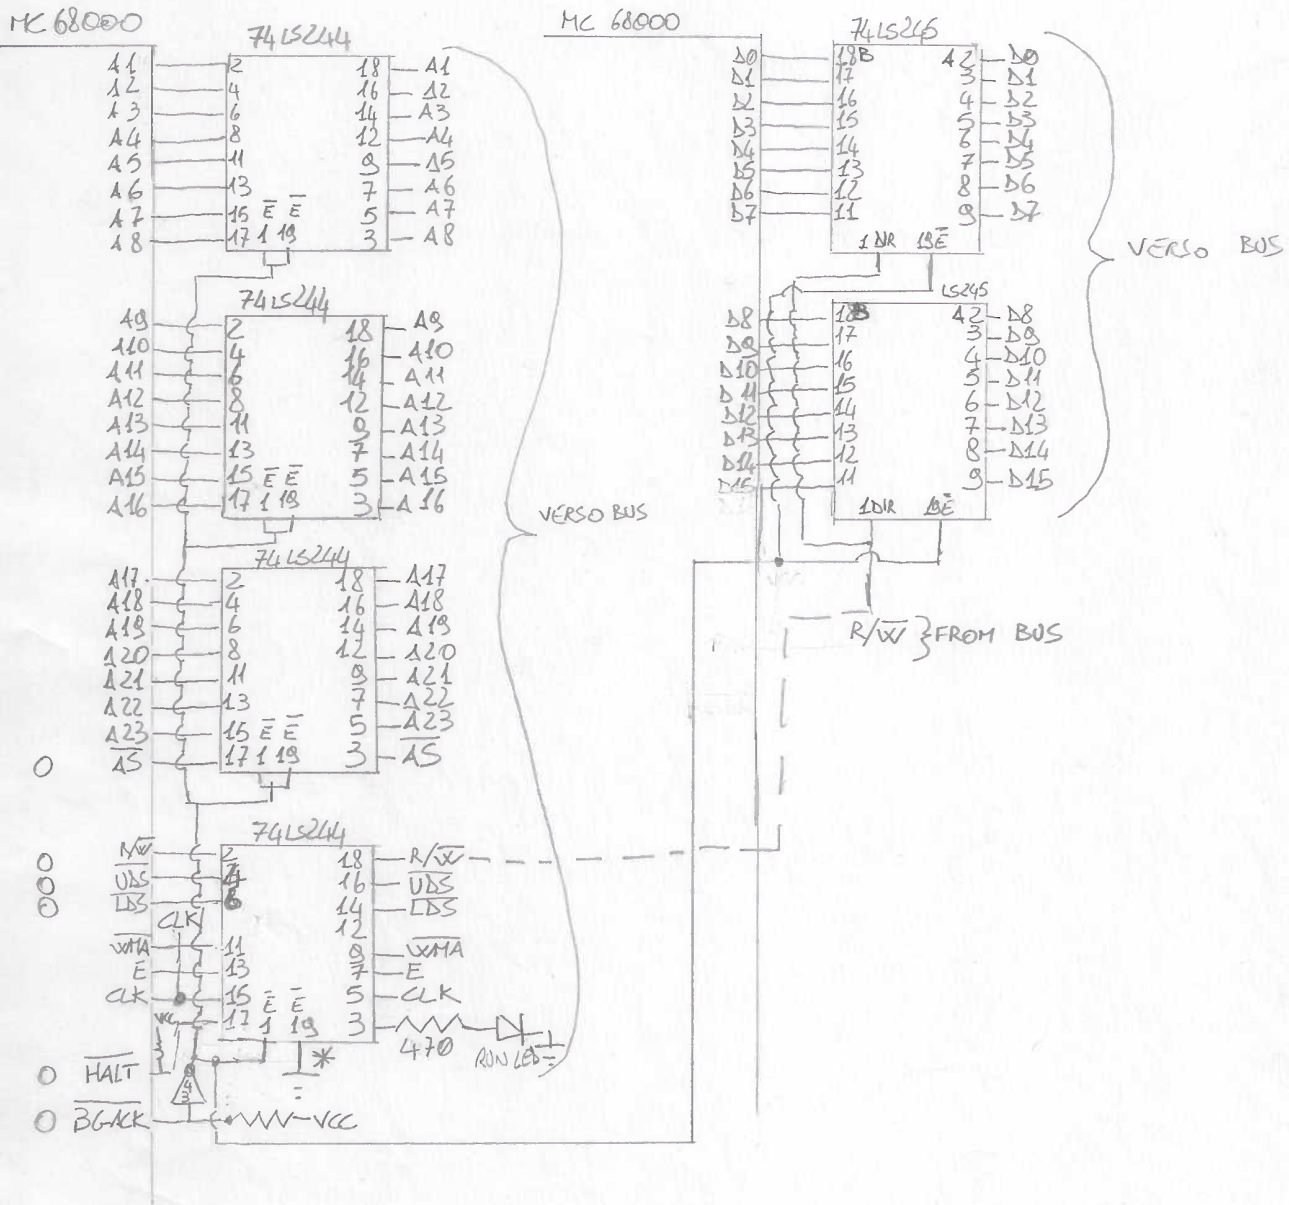 MC 68000
74LS244
A1 2 18 A1
A2 4 16 A2
A3 6 14 A3
A4 8 12 A4
A5 11 9 A5
A6 13 7 A6
A7 15 E E 5 A7
A8 17 1 19 3 A8
74LS244
A9 2 18 A9
A10 4 16 A10
A11 6 14 A11
A12 8 12 A12
A13 11 9 A13
A14 13 7 A14
A15 15 E E 5 A15
A16 17 1 19 3 A16
74LS244
A17 2 18 A17
A18 4 16 A18
A19 6 14 A19
A20 8 12 A20
A21 11 9 A21
A22 13 7 A22
A23 15 E E 5 A23
AS 17 1 19 3 AS
74LS244
R/W 2 18 R/W
UDS 4 16 UDS
LDS 6 14 LDS
CLK 12
VMA 11 9 VMA
E 13 7 E
CLK 15 E E 5 CLK
VCC 17 1 19 3
470 RUN LED
*
HALT 4
3
BGACK VCC
VERSO BUS
MC 68000
74LS245
D0 18B A2 D0
D1 17 3 D1
D2 16 4 D2
D3 15 5 D3
D4 14 6 D4
D5 13 7 D5
D6 12 8 D6
D7 11 9 D7
1 DIR 19E
VERSO BUS
LS245
D8 18B A2 D8
D9 17 3 D9
D10 16 4 D10
D11 15 5 D11
D12 14 6 D12
D13 13 7 D13
D14 12 8 D14
D15 11 9 D15
1DIR 19E
R/W } FROM BUS